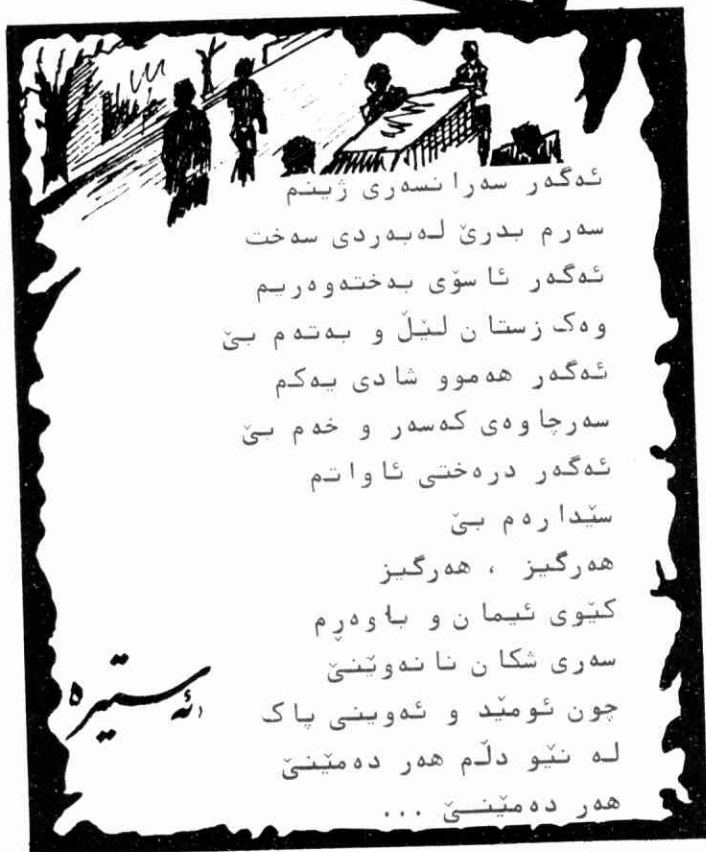 ئەگەر سەرانسەری ژینم
سەرم بدرێ لەبەردی سەخت
ئەگەر ئاسۆی بەختەوەریم
وەک زستان لێڵ و بەتەم بێ
ئەگەر هەموو شادی یەکم
سەرچاوەی کەسەر و خەم بێ
ئەگەر درەختی ئاواتم
سێدارەم بێ
هەرگیز ، هەرگیز
کێوی ئیمان و باوەڕم
سەری شکان نانەوێنێ
چون ئومێد و ئەوینی پاک
لە نێو دڵم هەر دەمێنێ
هەر دەمێنێ ...
ئەستێرە